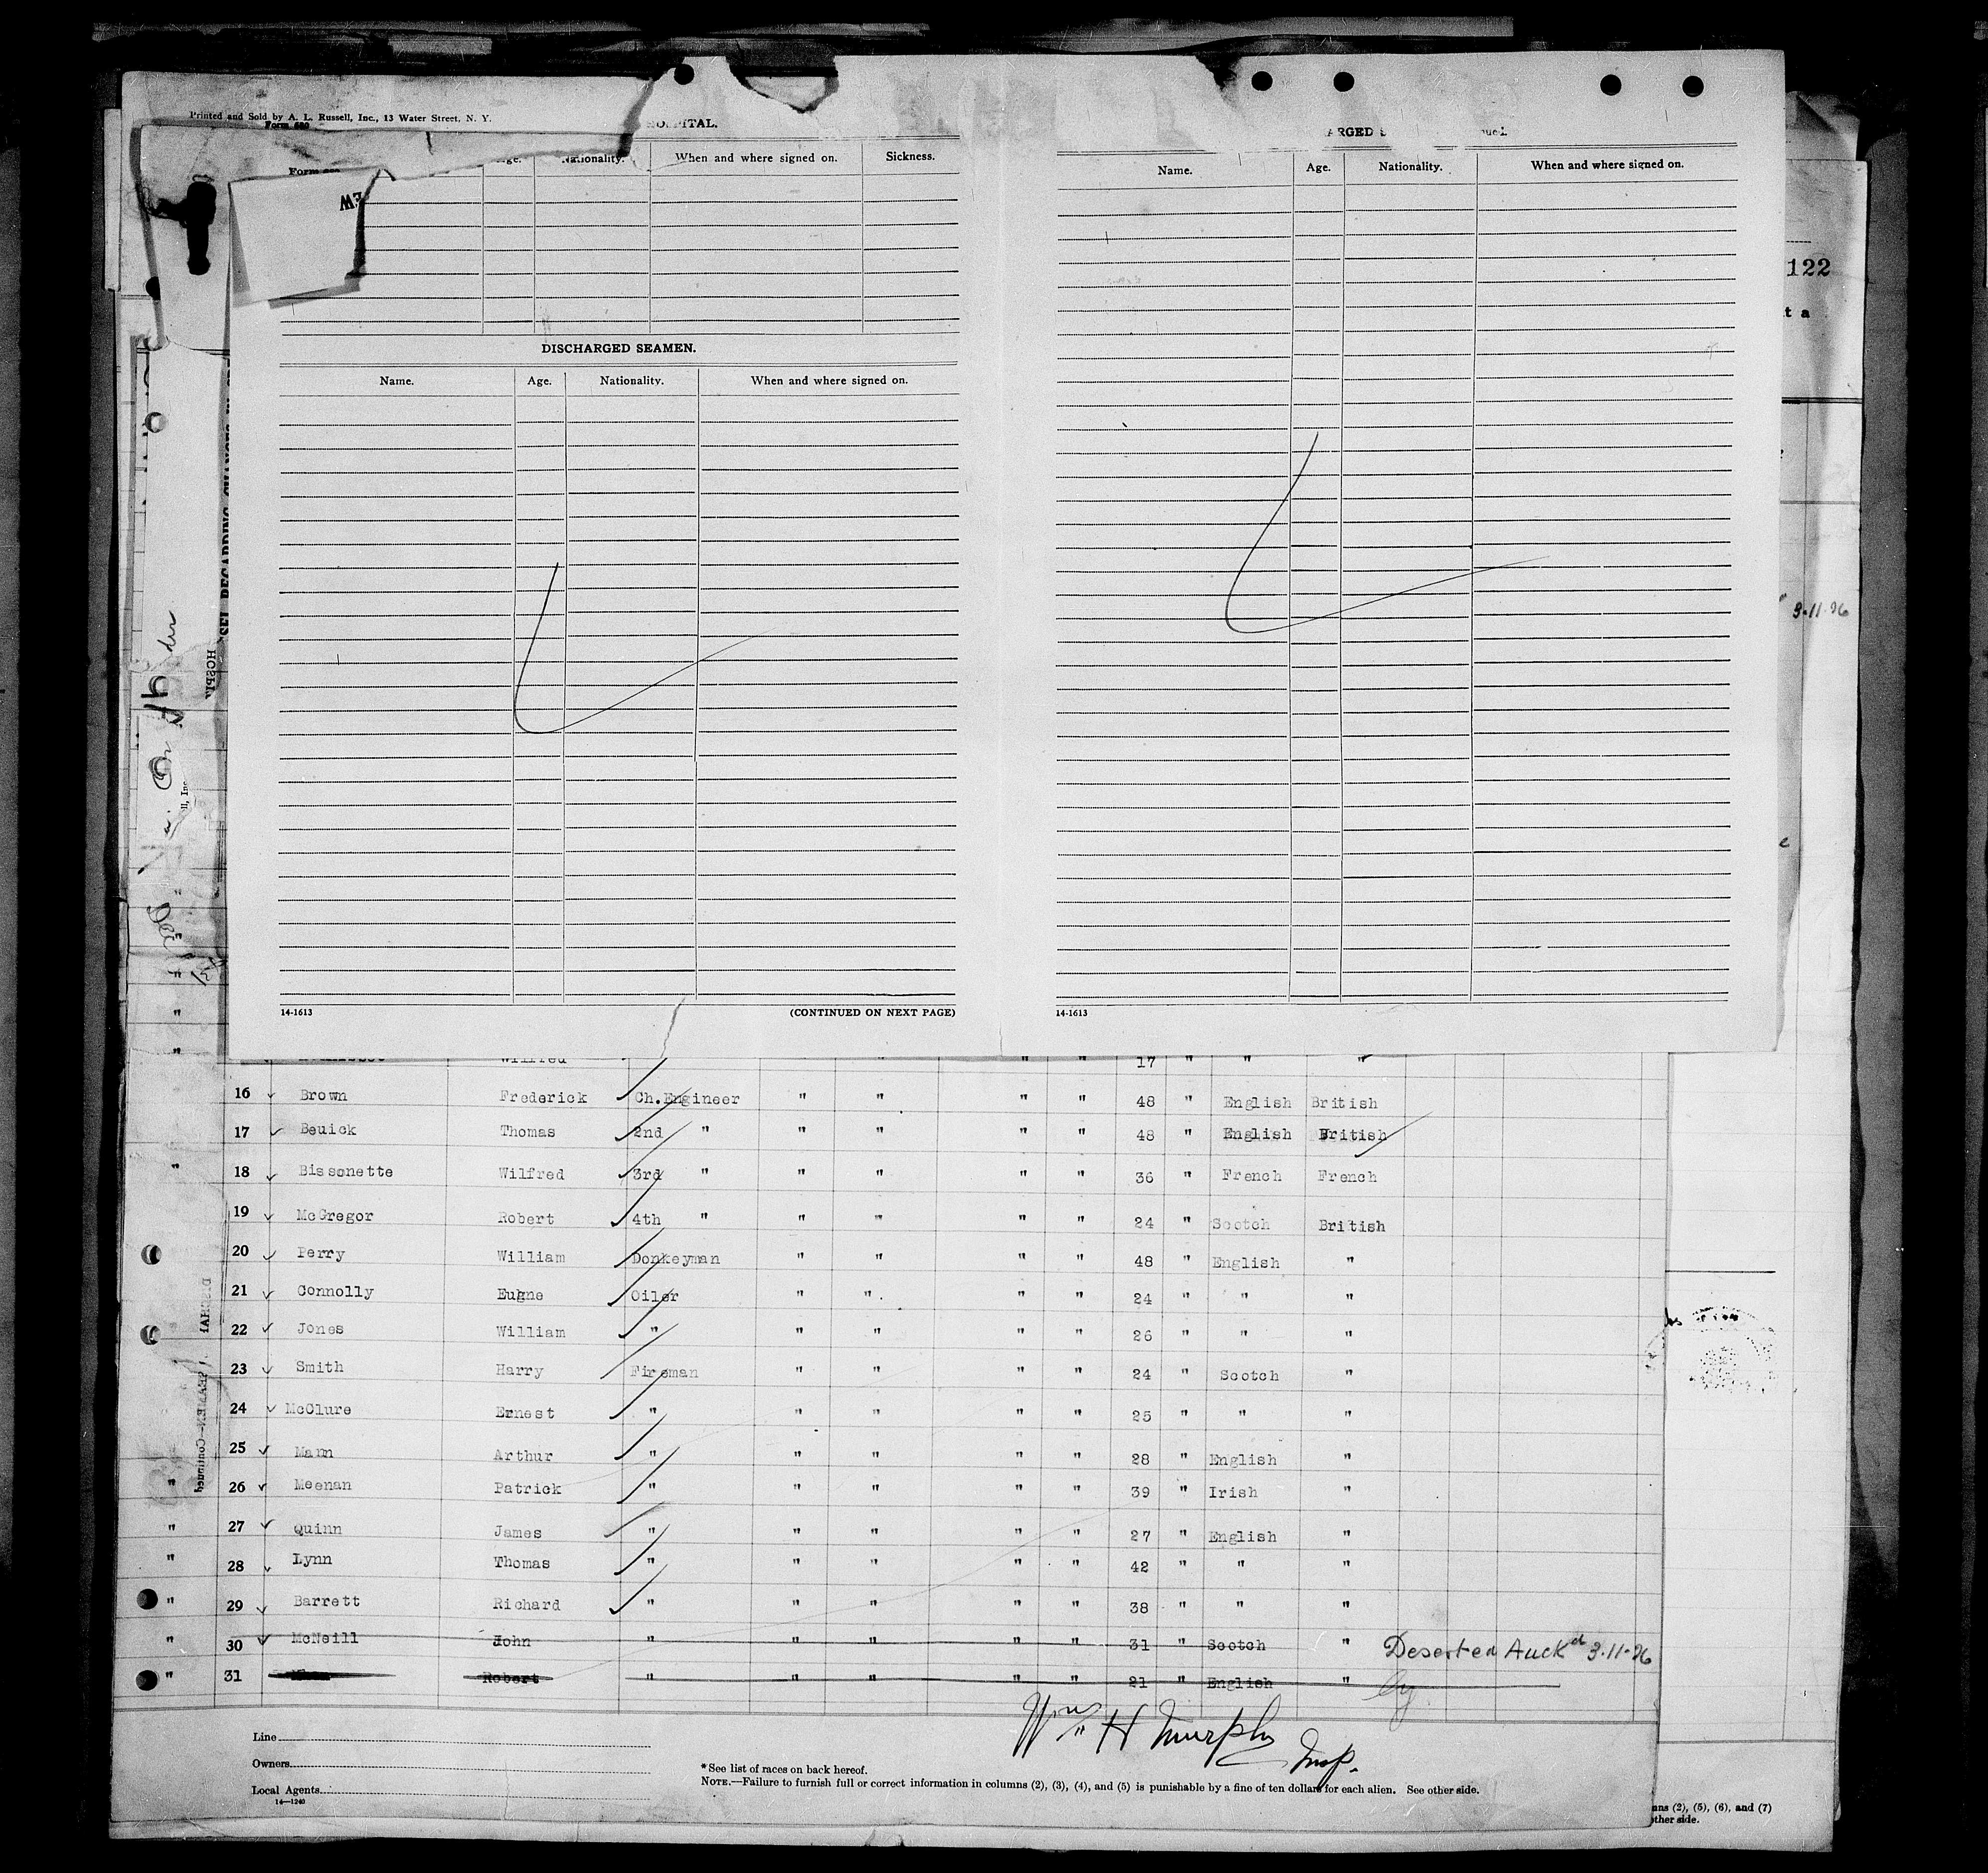 Printed and Sold by A. L. Russell, Inc., 13 Water Street, N. Y.
Nationality. When and where signed on. Sickness.
DISCHARGED SEAMEN.
Name. Age. Nationality. When and where signed on.
14-1613 (CONTINUED ON NEXT PAGE)
Name. Age. Nationality. When and where signed on.
14-1613
122
t a
3-11-26
Wilfred " " " 17 " " "
16 Brown Frederick Ch.Engineer " " " " 48 " English British
17 Beuick Thomas 2nd " " " " " 48 " English British
18 Bissonette Wilfred 3rd " " " " " 36 " French French
19 McGregor Robert 4th " " " " " 24 " Scotch British
20 Perry William Donkeyman " " " " 48 " English "
21 Connolly Eugne Oiler " " " " 24 " " "
22 Jones William " " " " " 26 " " "
23 Smith Harry Fireman " " " " 24 " Scotch "
24 McClure Ernest " " " " " 25 " " "
25 Mann Arthur " " " " " 28 " English "
26 Meenan Patrick " " " " " 39 " Irish "
27 Quinn James " " " " " 27 " English "
28 Lynn Thomas " " " " " 42 " " "
29 Barrett Richard " " " " " 38 " " "
30 McNeill John " " " " " 31 " Scotch " Deserted Auckd 3-11-26
31 Robert " " " " " 21 " English "
Wm H Murphy Insp.
Line
Owners
Local Agents
14—1240
*See list of races on back hereof.
NOTE.—Failure to furnish full or correct information in columns (2), (3), (4), and (5) is punishable by a fine of ten dollars for each alien. See other side.
(2), (5), (6), and (7)
other side.